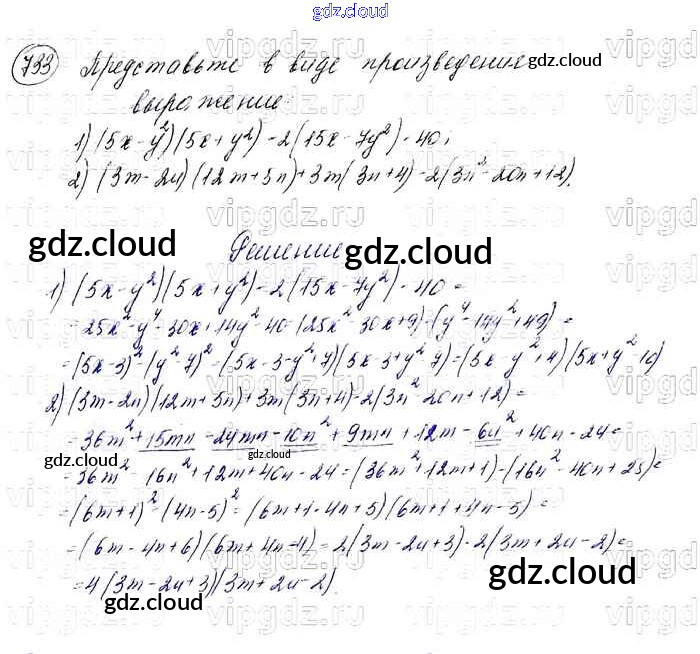 gdz.cloud
733 Представьте в виде произведения
gdz.cloud
выражение:
1) (5x-y²)(5x+y²)-2(15x-7y²)-40;
2) (3m-2n)(12m+5n)+3m(3n+4)-2(3n²-20n+12).
gdz.cloud
Решение
gdz.cloud
1) (5x-y²)(5x+y²)-2(15x-7y²)-40=
=25x²-y⁴-30x+14y²-40=(25x²-30x+9)-(y⁴-14y²+49)=
=(5x-3)²-(y²-7)²=(5x-3-y²+7)(5x-3+y²-7)=(5x-y²+4)(5x+y²-10)
2) (3m-2n)(12m+5n)+3m(3n+4)-2(3n²-20n+12)=
=36m²+15mn-24mn-10n²+9mn+12m-6n²+40n-24=
gdz.cloud
gdz.cloud
=36m²-16n²+12m+40n-24=(36m²+12m+1)-(16n²-40n+25)=
=(6m+1)²-(4n-5)²=(6m+1-4n+5)(6m+1+4n-5)=
=(6m-4n+6)(6m+4n-4)=2(3m-2n+3)·2(3m+2n-2)=
=4(3m-2n+3)(3m+2n-2).
gdz.cloud
gdz.cloud
vipgdz.ru